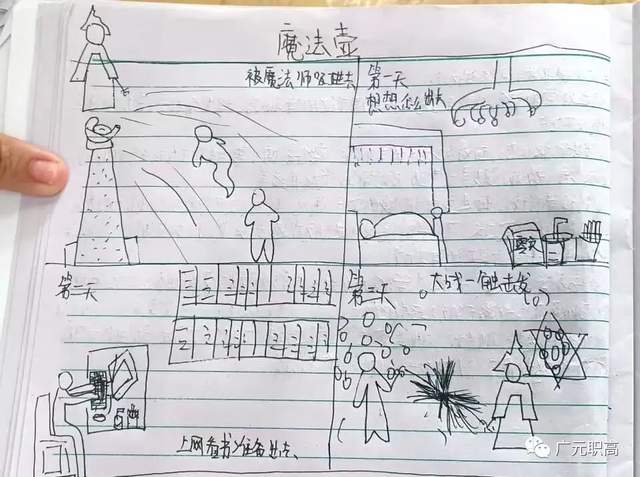 魔法壶
被魔法师吸进去
第一天
想想怎么出去
零食
第二天
上网看书准备出去
第三天
大战一触击发
广元职高